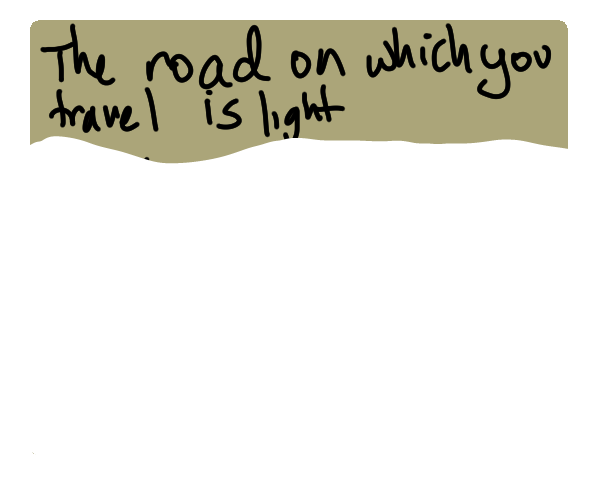 The road on which you
travel is light